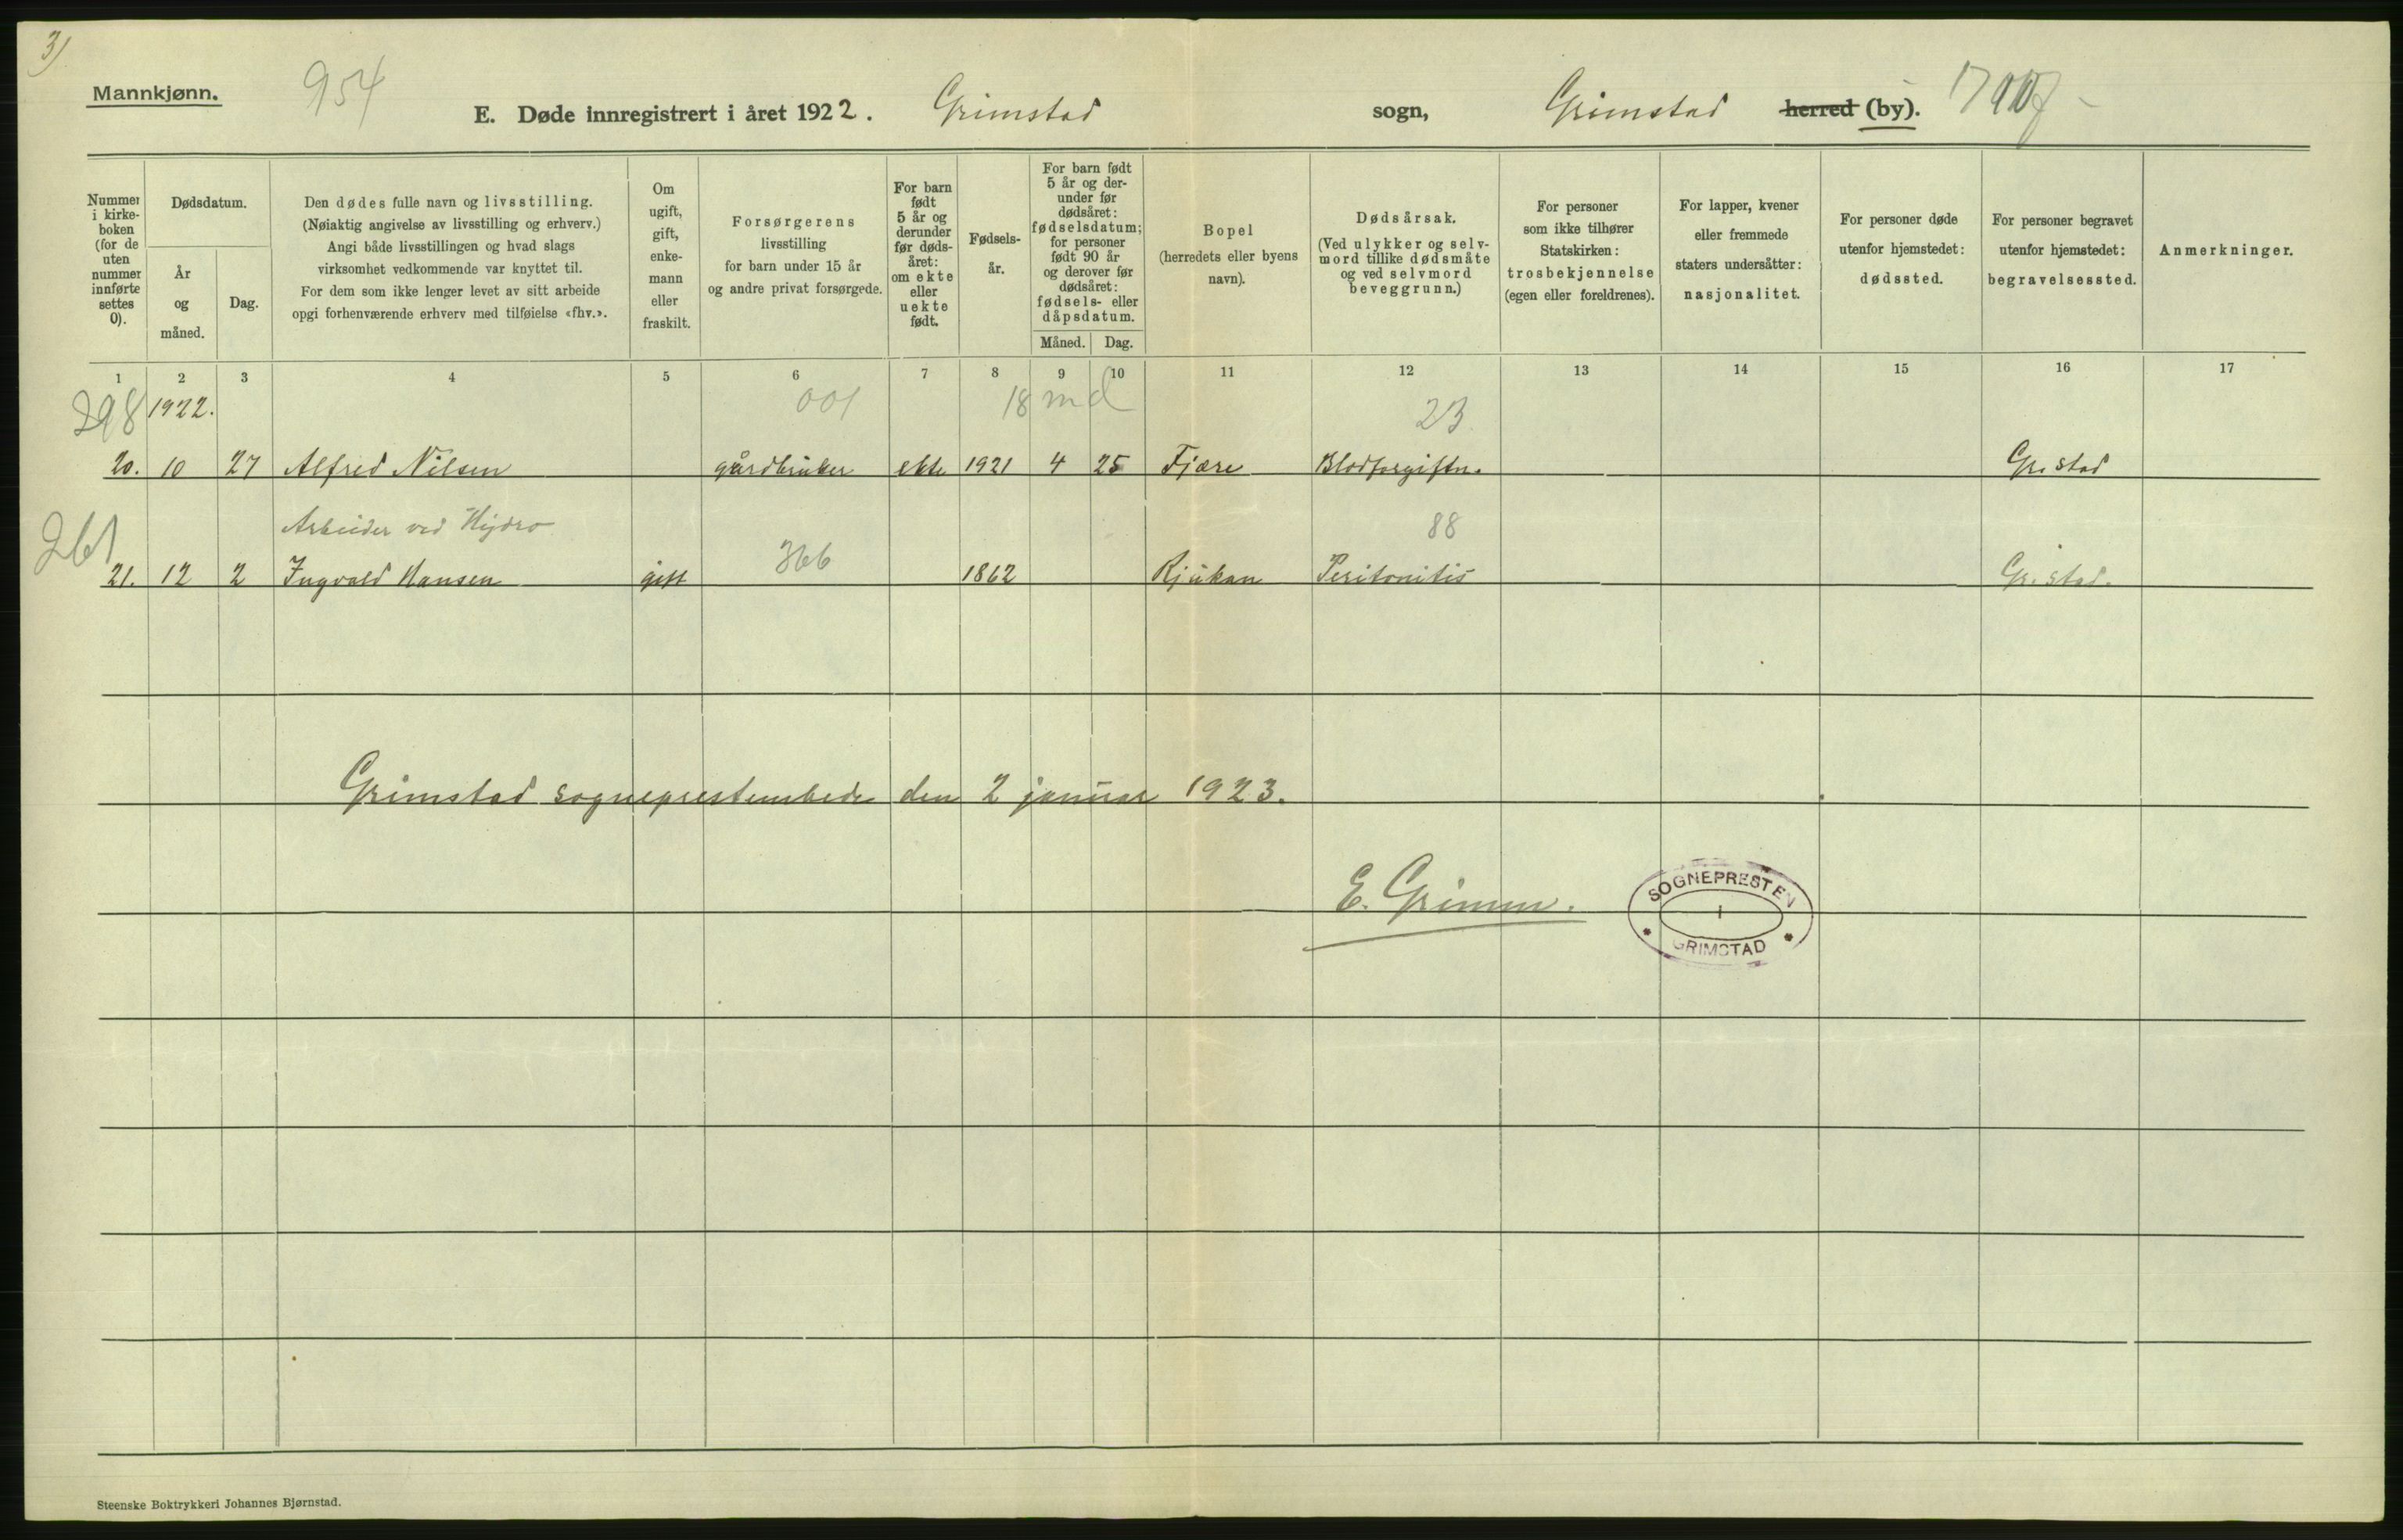 3)
Mannkjønn.
954
E. Døde innregistrert i året 1922. Grimstad sogn, Grimstad herred (by).
Nummer i kirke-boken (for de uten nummer innførte settes 0).
Dødsdatum.
År og måned.
Dag.
Den dødes fulle navn og livsstilling.
(Nøiaktig angivelse av livsstilling og erhverv.)
Angi både livsstillingen og hvad slags
virksomhet vedkommende var knyttet til.
For dem som ikke lenger levet av sitt arbeide
opgi forhenværende erhverv med tilføielse «fhv.».
Om ugift, gift, enke-mann eller fraskilt.
Forsørgerens
livsstilling
for barn under 15 år
og andre privat forsørgede.
For barn født 5 år og derunder før døds-året: om ekte eller uekte født.
Fødsels-år.
For barn født 5 år og der-under før dødsåret: fødselsdatum; for personer født 90 år og derover før dødsåret: fødsels- eller dåpsdatum.
Måned. Dag.
Bopel
(herredets eller byens
navn).
Dødsårsak.
(Ved ulykker og selv-
mord tillike dødsmåte
og ved selvmord
beveggrunn.)
For personer
som ikke tilhører
Statskirken:
trosbekjennelse
(egen eller foreldrenes).
For lapper, kvener
eller fremmede
staters undersåtter:
nasjonalitet.
For personer døde
utenfor hjemstedet:
dødssted.
For personer begravet
utenfor hjemstedet:
begravelsessted.
Anmerkninger.
1 2 3 4 5 6 7 8 9 10 11 12 13 14 15 16 17
298 1922. 001 18 md 23
20. 10 27 Alfred Nilsen gårdbruker ekte 1921 4 25 Fjære Blodforgiftn. Gr.stad
261 Arbeider ved Hydro 366 88
21. 12 2 Ingvald Hansen gift 1862 Rjukan Peritonitis Gr.stad.
Grimstad sogneprestembede den 2 januar 1923.
E. Grimm.
SOGNEPRESTEN
I
GRIMSTAD
Steenske Boktrykkeri Johannes Bjørnstad.